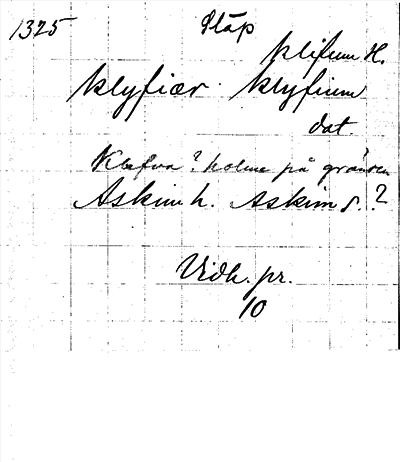 1325 Släp
klifum H.
klyfiær. klyfium
dat.
Klefva? holme på gränsen
Askim h. Askim s. ?
Vidh. pr.
10